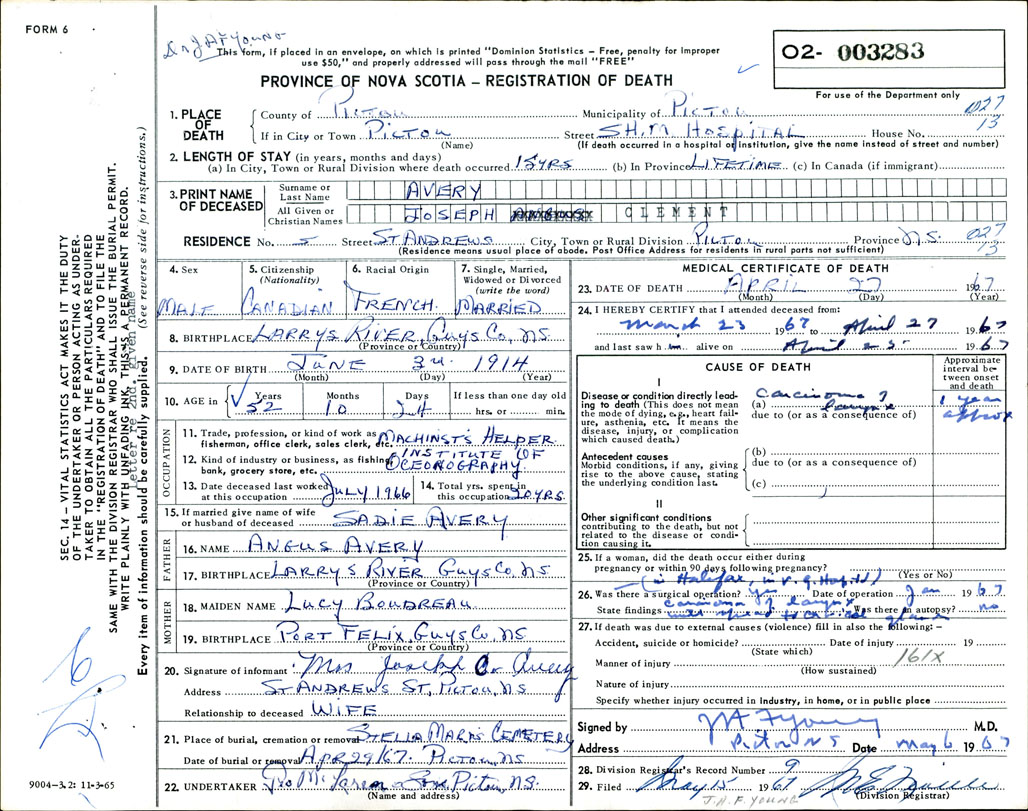 FORM 6
Dr JAF Young
This form, if placed in an envelope, on which is printed "Dominion Statistics – Free, penalty for improper
use $50," and properly addressed will pass through the mail "FREE"
O2- 003283
PROVINCE OF NOVA SCOTIA – REGISTRATION OF DEATH
For use of the Department only
027
13
1. PLACE OF DEATH
County of PICTOU Municipality of PICTOU
If in City or Town PICTOU Street SH.M HOSPITAL House No.
(Name) (If death occurred in a hospital or institution, give the name instead of street and number)
2. LENGTH OF STAY (in years, months and days)
(a) In City, Town or Rural Division where death occurred 15 YRS (b) In Province LIFETIME (c) In Canada (if immigrant)
3. PRINT NAME OF DECEASED
Surname or Last Name AVERY
All Given or Christian Names JOSEPH CLEMENT
RESIDENCE No. 5 Street ST ANDREWS City, Town or Rural Division PICTOU Province N.S. 027
13
(Residence means usual place of abode. Post Office Address for residents in rural parts not sufficient)
4. Sex MALE
5. Citizenship (Nationality) CANADIAN
6. Racial Origin FRENCH.
7. Single, Married, Widowed or Divorced (write the word) MARRIED
8. BIRTHPLACE LARRYS RIVER, GUYS CO, N.S.
(Province or Country)
9. DATE OF BIRTH JUNE 3rd 1914
(Month) (Day) (Year)
10. AGE in Years 52 Months 10 Days 24 If less than one day old
hrs. or min.
OCCUPATION
11. Trade, profession, or kind of work as fisherman, office clerk, sales clerk, etc. MACHINST'S HELPER
12. Kind of industry or business, as fishing, bank, grocery store, etc. INSTITUTE OF OCEONOGRAPHY.
13. Date deceased last worked at this occupation JULY 1966
14. Total yrs. spent in this occupation 20 YRS.
15. If married give name of wife or husband of deceased SADIE AVERY
FATHER
16. NAME ANGUS AVERY
17. BIRTHPLACE LARRYS RIVER GUYS CO, N.S
(Province or Country)
MOTHER
18. MAIDEN NAME LUCY BOUDREAU
19. BIRTHPLACE PORT FELIX, GUYS CO, NS
(Province or Country)
20. Signature of informant Mrs Joseph C. Avery
Address ST ANDREWS ST, PICTOU, NS
Relationship to deceased WIFE
21. Place of burial, cremation or removal STELLA MARIS CEMETERY
Date of burial or removal APR 29/67. PICTOU, NS
22. UNDERTAKER Geo McLaren & Sons Pictou, N.S.
(Name and address)
MEDICAL CERTIFICATE OF DEATH
23. DATE OF DEATH APRIL 27 1967
(Month) (Day) (Year)
24. I HEREBY CERTIFY that I attended deceased from:
March 23 1967 to April 27 1967
and last saw him alive on April 25 1967
CAUSE OF DEATH
Approximate interval between onset and death
I
Disease or condition directly leading to death (This does not mean the mode of dying, e.g., heart failure, asthenia, etc. It means the disease, injury, or complication which caused death.)
(a) Carcinoma of larynx 1 year approx
due to (or as a consequence of)
Antecedent causes
Morbid conditions, if any, giving rise to the above cause, stating the underlying condition last.
(b)
due to (or as a consequence of)
(c)
II
Other significant conditions
contributing to the death, but not related to the disease or condition causing it.
25. If a woman, did the death occur either during
pregnancy or within 90 days following pregnancy?
(Yes or No)
(in Halifax, in V.G. Hospital)
26. Was there a surgical operation? Yes Date of operation Jan 1967
State findings carcinoma of larynx Was there an autopsy? no
with spread to cervical glands
27. If death was due to external causes (violence) fill in also the following: –
Accident, suicide or homicide? Date of injury 19
(State which)
Manner of injury 161X
(How sustained)
Nature of injury
Specify whether injury occurred in Industry, in home, or in public place
Signed by JAF Young M.D.
Address Pictou NS Date May 6 1967
28. Division Registrar's Record Number 9
29. Filed May 15 1967
(Division Registrar)
J.A.F. YOUNG
SEC. 14 – VITAL STATISTICS ACT MAKES IT THE DUTY
OF THE UNDERTAKER OR PERSON ACTING AS UNDER-
TAKER TO OBTAIN ALL THE PARTICULARS REQUIRED
IN THE "REGISTRATION OF DEATH" AND TO FILE THE
SAME WITH THE DIVISION REGISTRAR WHO SHALL ISSUE THE BURIAL PERMIT.
WRITE PLAINLY WITH UNFADING INK. THIS IS A PERMANENT RECORD.
letter re 2nd. given name
Every item of information should be carefully supplied. (See reverse side for instructions.)
9004-3.2: 11-3-65